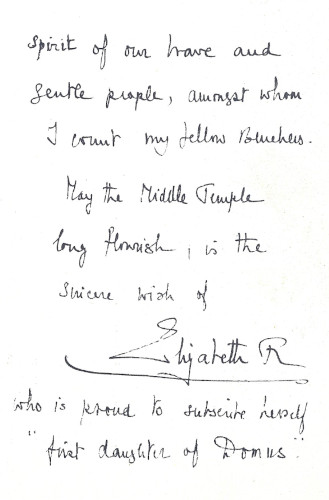 spirit of our brave and
gentle people, amongst whom
I count my fellow Benchers.
May the Middle Temple
long flourish, is the
sincere wish of
Elizabeth R
who is proud to subscribe herself
"first daughter of Domus".